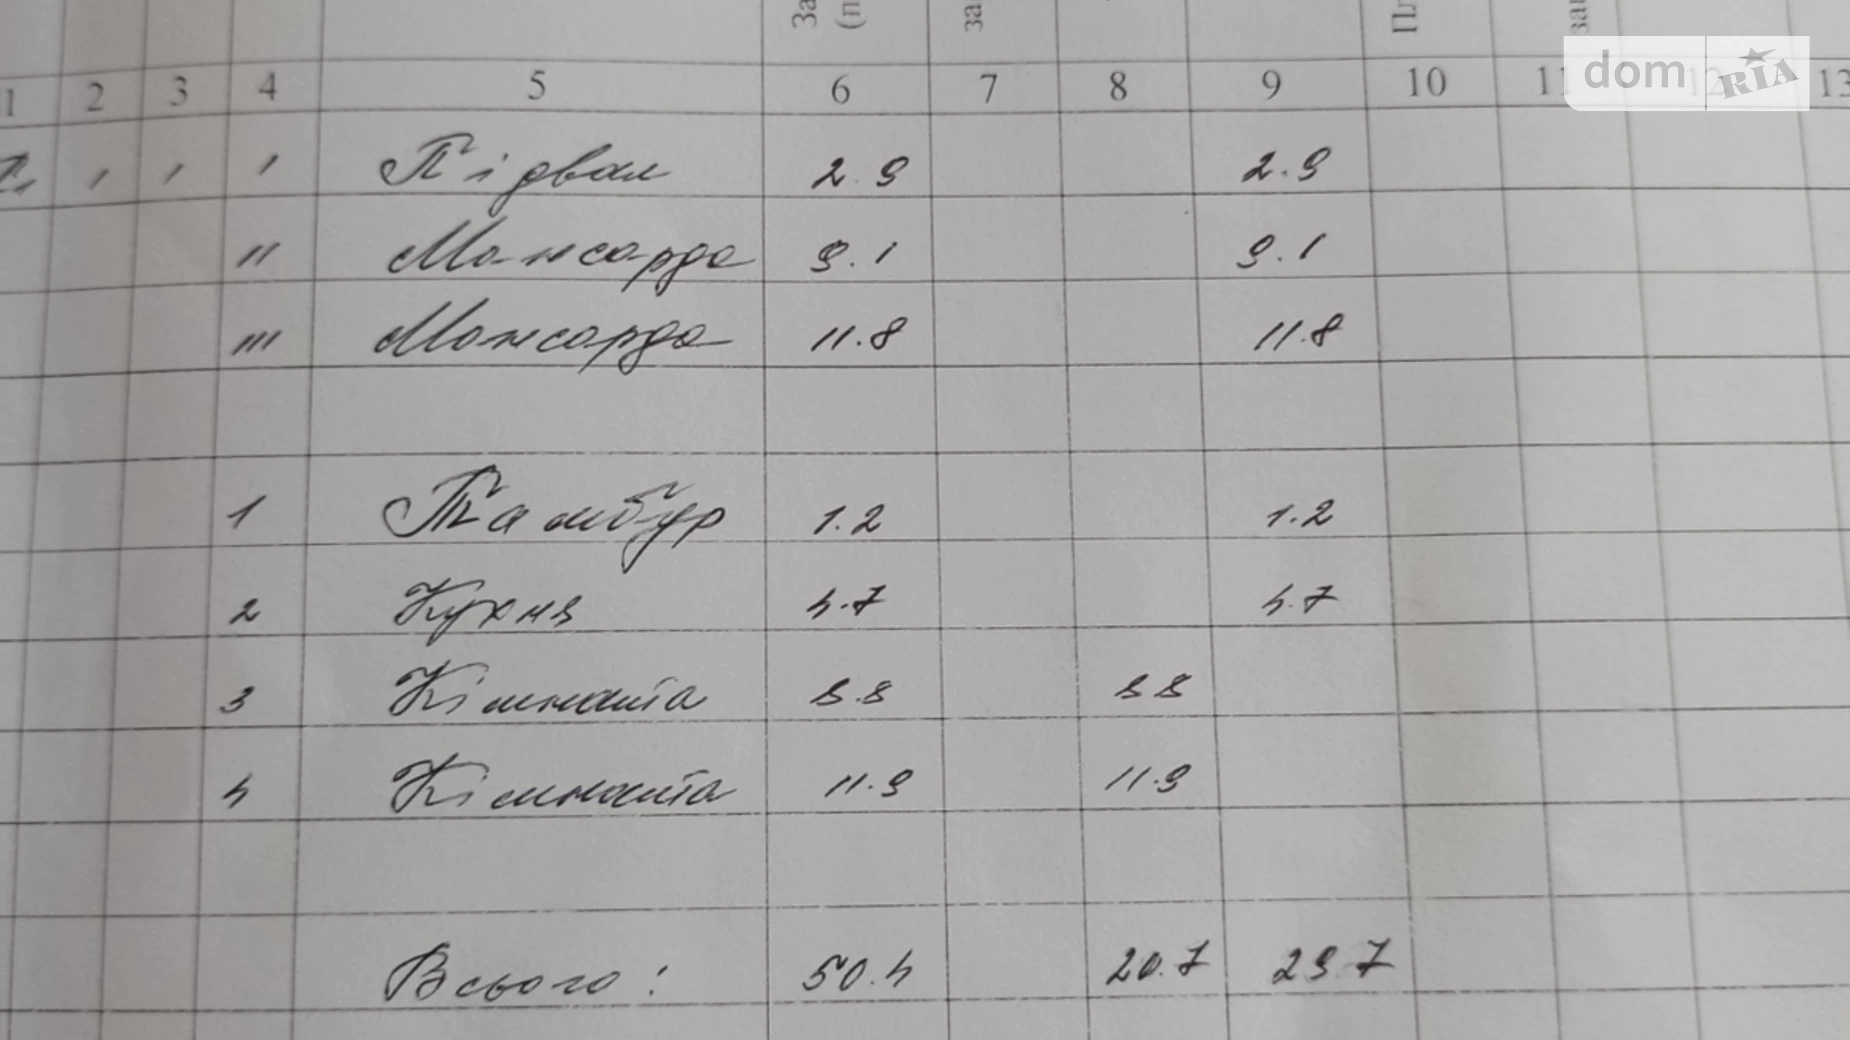 За (п за Пл заг
dom RIA
1 2 3 4 5 6 7 8 9 10 11 12 13
I I I Підвал 2.9 2.9
II Мансарда 9.1 9.1
III Мансарда 11.8 11.8
1 Тамбур 1.2 1.2
2 Кухня 4.7 4.7
3 Кімната 8.8 8.8
4 Кімната 11.9 11.9
Всього: 50.4 20.7 29.7